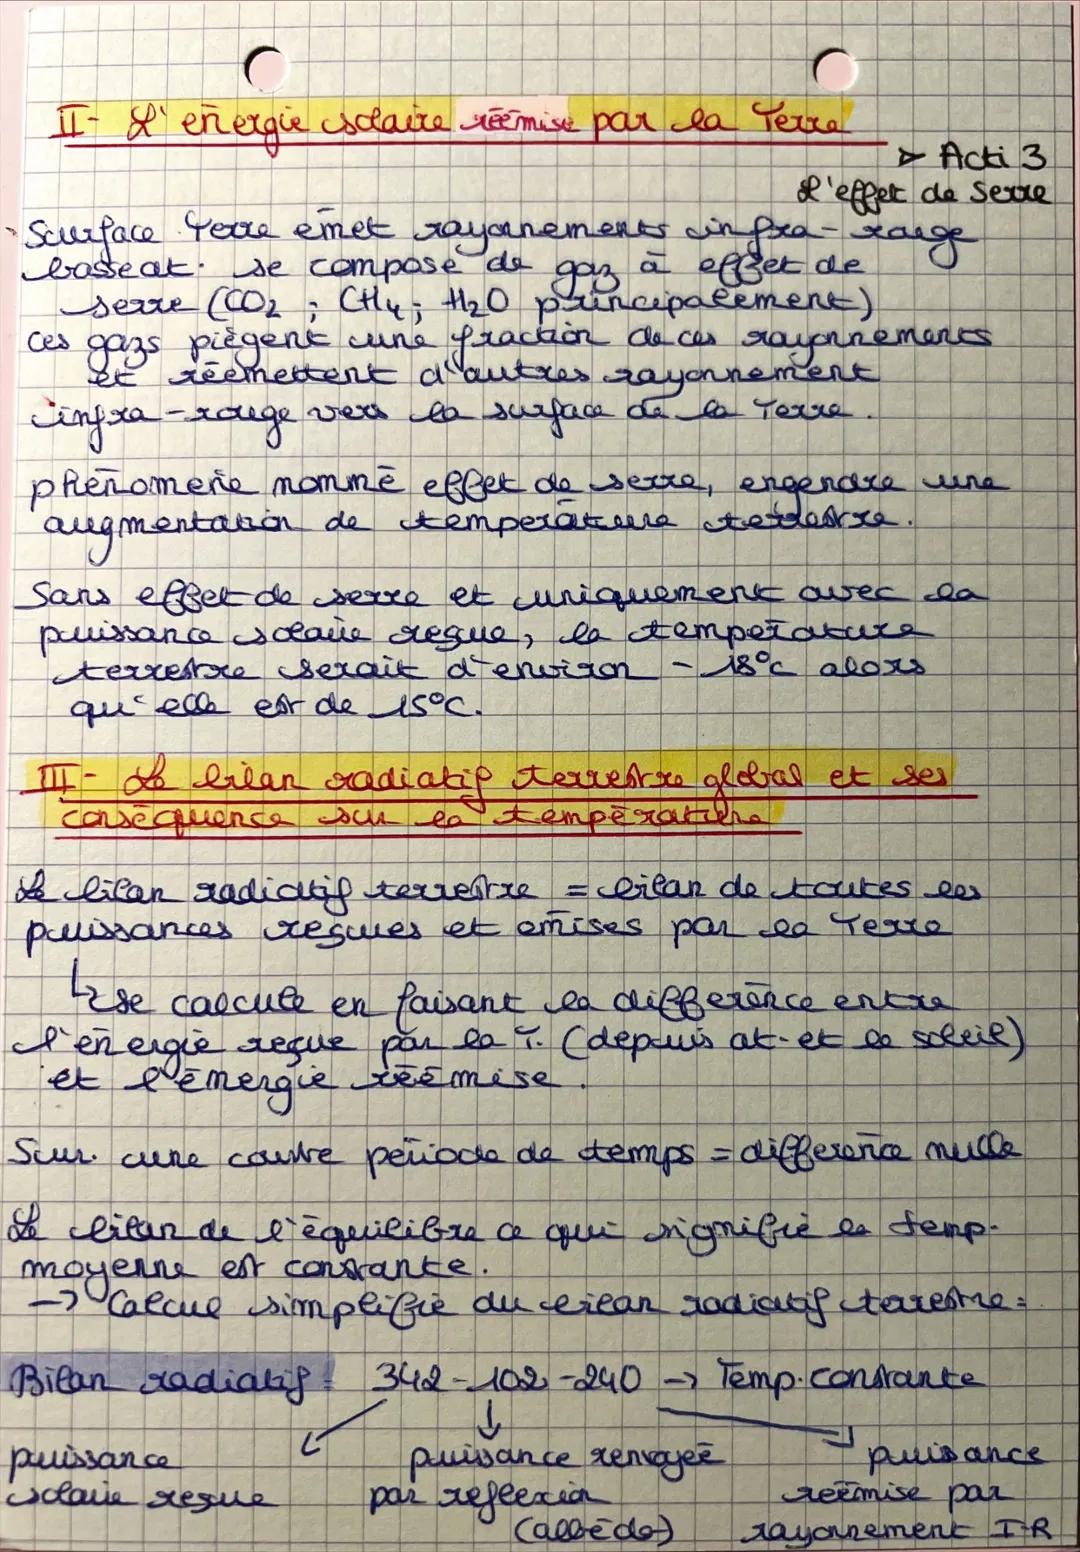 II- L'énergie solaire réémise par la Terre
> Acti 3
L'effet de Serre
Surface Terre émet rayonnements infra-rouge
basse at. se compose de gaz à effet de
serre (CO2 ; CH4 ; H2O principalement)
ces gazs piègent une fraction de ces rayonnements
et réemettent d'autres rayonnement
infra-rouge vers la surface de la Terre.
phénomène nommé effet de serre, engendre une
augmentation de température terrestre.
Sans effet de serre et uniquement avec la
puissance solaire reçue, la température
terrestre serait d'environ -18°C alors
qu'elle est de 15°C.
III- Le bilan radiatif terrestre global et ses
conséquence sur la température
Le bilan radiatif terrestre = bilan de toutes les
puissances reçues et émises par la Terre
↳ se calcule en faisant la différence entre
l'énergie reçue par la T. (depuis at. et le soleil)
et l'émergie réémise.
Sur une courte période de temps = différence nulle
Le bilan de l'équilibre ce qui signifie la temp.
moyenne est constante.
-> Calcul simplifié du bilan radiatif terrestre :
Bilan radiatif : 342-102-240 -> Temp. constante
puissance puissance renvoyée puissance
solaire reçue par reflexion réémise par
(albédo) rayonnement I-R